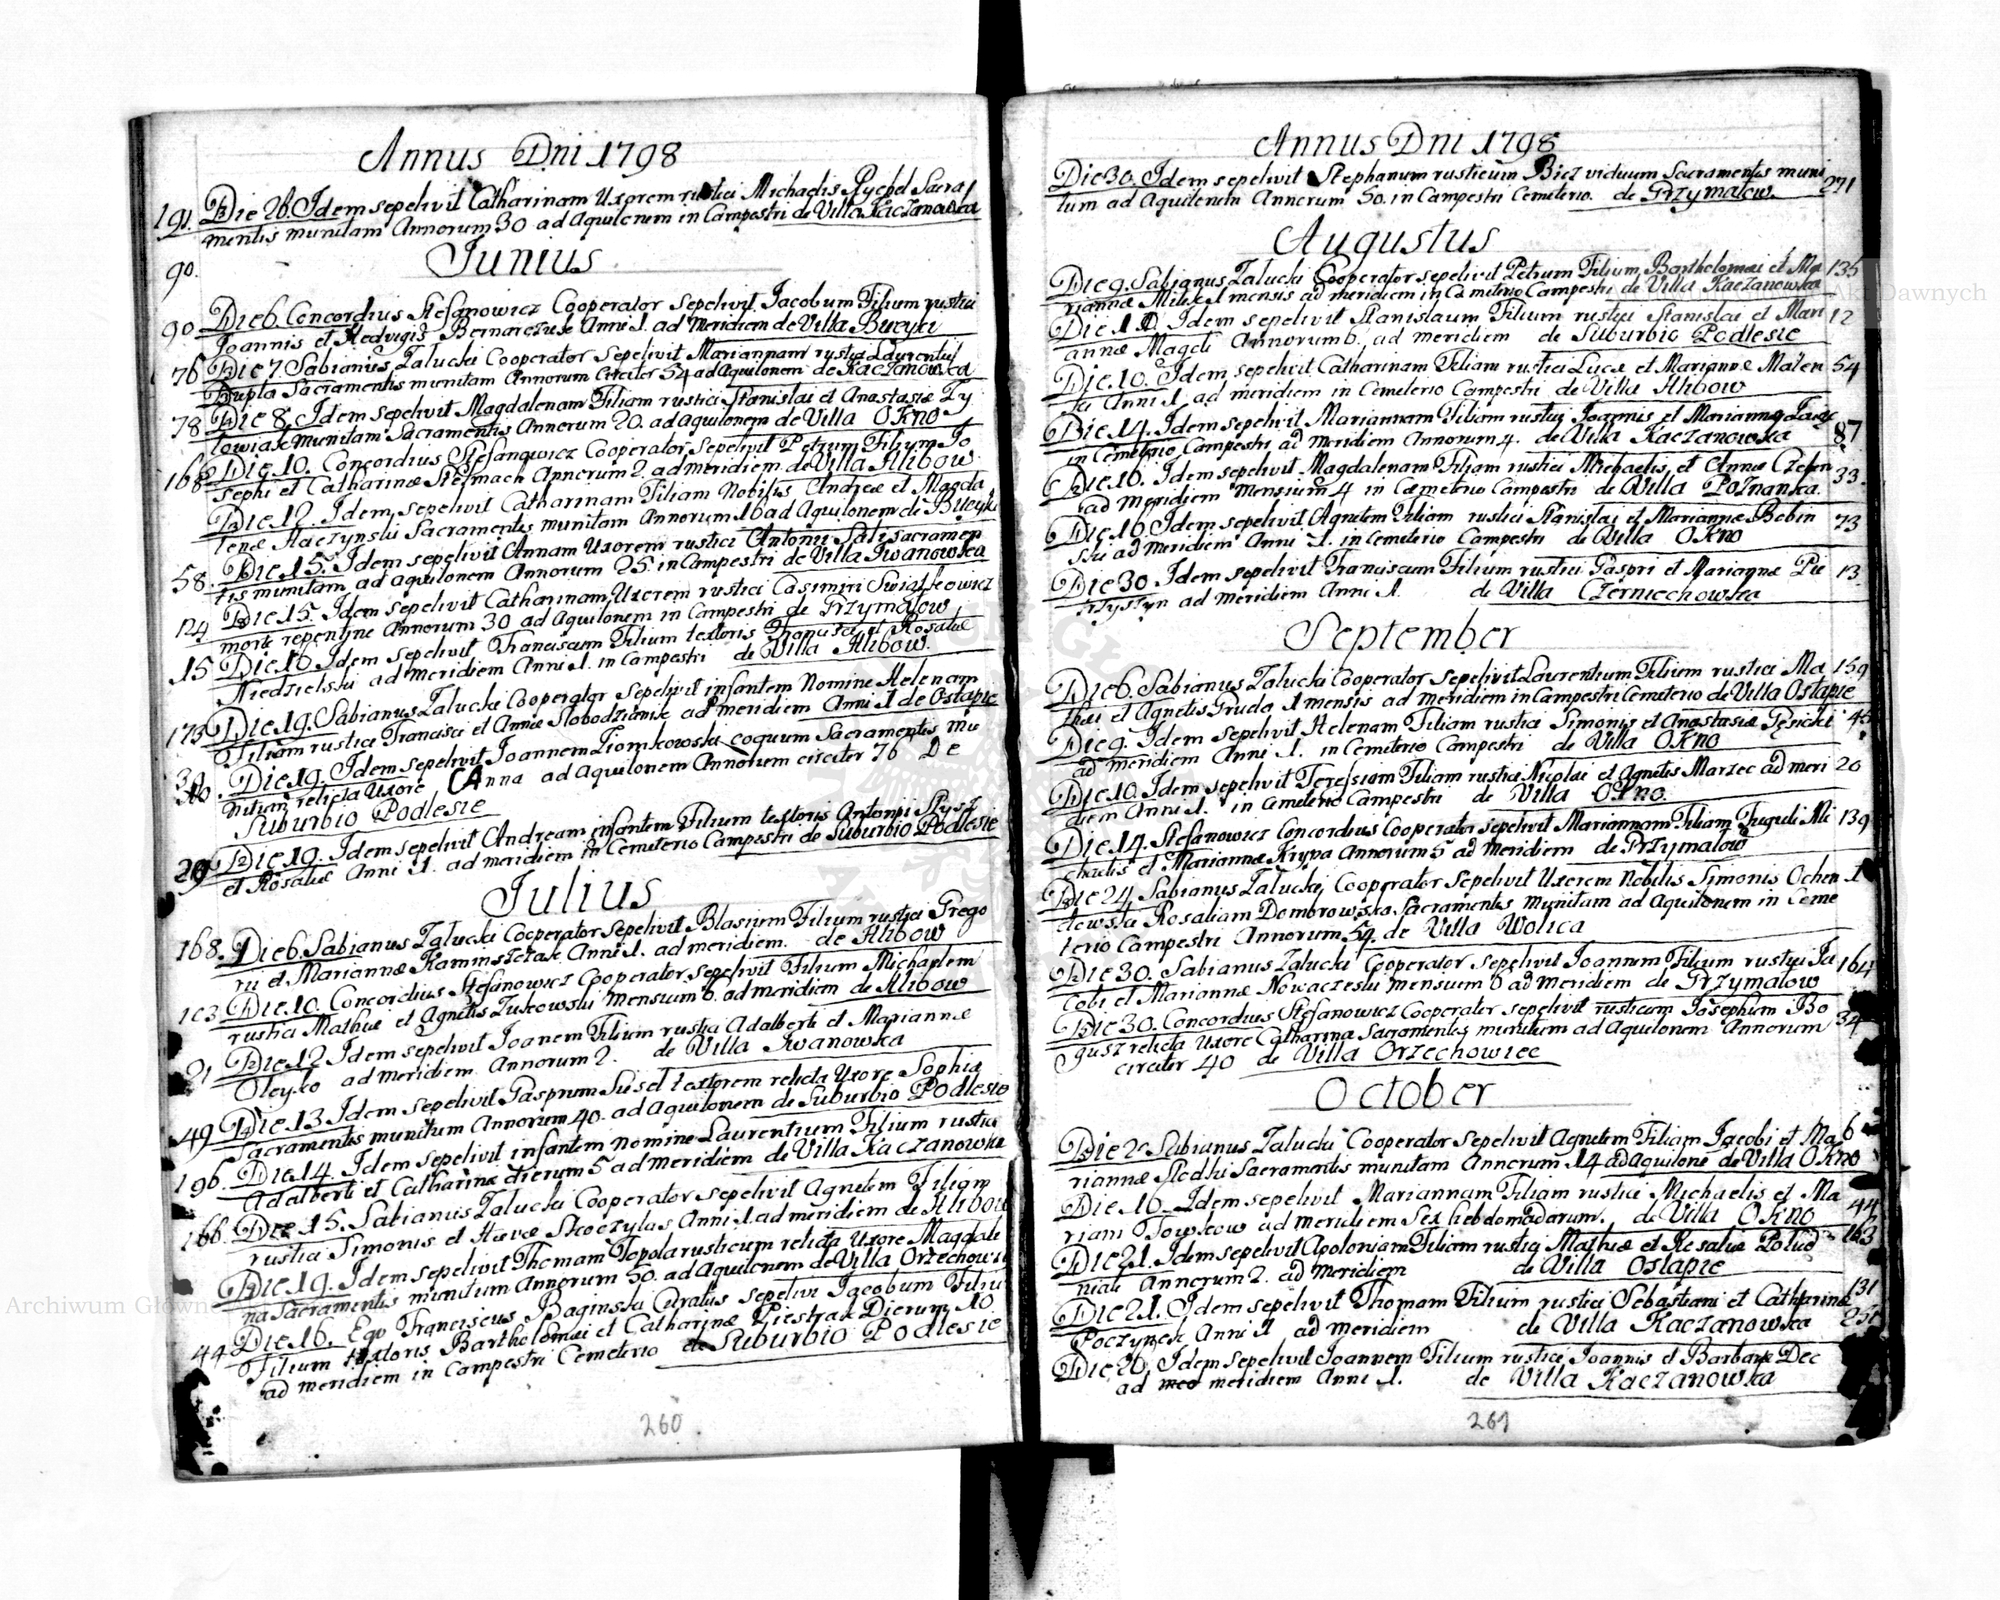 Annus Dni 1798
191. Die 26. Idem sepelivit Catharinam Uxorem rustici Michaelis Rychel Sacra
mentis munitam Annorum 30 ad Aquilonem in Campestri de Villa Kaczanowka
Junius
90.
90 Die 6. Concordius Stefanowicz Cooperator Sepelivit Jacobum Filium rustici
Joannis et Hedvigis Bernarczuk Anni 1. ad Meridiem de Villa Bucyki
76 Die 7. Sabianus Zalucki Cooperator Sepelivit Mariannam rustici Laurentii
Dupla Sacramentis munitam Annorum circiter 54 ad Aquilonem de Kaczanowka
78 Die 8. Idem sepelivit Magdalenam Filiam rustici Stanislai et Anastasiæ Ty
towiak munitam Sacramentis Annorum 20. ad aquilonem de Villa OKno
168 Die 10. Concordius Stefanowicz Cooperator Sepelivit Petrum Filium Jo
sephi et Catharinæ Stelmach Annorum 2. ad meridiem de Villa Hlibow
Die 12. Idem sepelivit Catharinam Filiam Nobilis Andreæ et Magda
lenæ Raczynski Sacramentis munitam Annorum 16 ad Aquilonem de Bucyki
58. Die 15. Idem sepelivit Annam Uxorem rustici Antonii Sali sacramen
tis munitam ad aquilonem Annorum 25. in Campestri de Villa Iwanowka
124 Die 15. Idem sepelivit Catharinam Uxorem rustici Casimiri Swiatkowicz
morte repentine Annorum 30 ad Aquilonem in Campestri de Grzymalow
15 Die 16 Idem Sepelivit Franciscum Filium textoris Thomæ et Rosaliæ
Niedzielski ad meridiem Anni 1. in Campestri de Villa Hlibow.
173 Die 19. Sabianus Zalucki Cooperator sepelivit infantem Nomine Helenam
Filiam rustici Francisci et Annæ Slobodzianik ad meridiem Anni 1 de Ostapie
30. Die 19. Idem sepelivit Joannem Ziomkowski coquum Sacramentis mu
nitum relicta Uxore Anna ad Aquilonem Annorum circiter 76 De
Suburbio Podlesie
29 Die 19. Idem sepelivit Andream infantem Filium textoris Antonii
et Rosaliæ Anni 1. ad meridiem in Cemeterio Campestri de Suburbio Podlesie
Julius
168. Die 6. Sabianus Zalucki Cooperator Sepelivit Blasium Filium rustici Grego
rii et Mariannæ Kaminszczak Anni 1. ad meridiem. de Hlibow
103 Die 10. Concordius Stefanowicz Cooperator sepelivit Filium Michaelem
rustici Mathiæ et Agnetis Zukowski Mensium 6. ad meridiem de Hlibow
21 Die 12 Idem sepelivit Joanem Filium rustici Adalberti et Mariannæ
Oleyko ad meridiem Annorum 2. de Villa Iwanowka
49 Die 13 Idem sepelivit Gasprum Susel textorem relicta Uxore Sophia
Sacramentis munitum Annorum 40. ad Aquilonem de Suburbio Podlesie
196. Die 14. Idem sepelivit infantem nomine Laurentium Filium rustici
Adalberti et Catharinæ dierum 5 ad meridiem de Villa Kaczanowka
166 Die 15. Sabianus Zalucki Cooperator sepelivit Agnetem Filiam
rustici Simonis et Hævæ Skoczylas Anni 1. ad meridiem de Hlibow
Die 19. Idem sepelivit Thomam Topola rusticum relicta Uxore Magdale
na Sacramentis munitum Annorum 50. ad Aquilonem de Villa Orzechowi
44 Die 16. Ego Franciscus Baginski Curatus sepelivi Jacobum Filiu
Filium textoris Bartholomæi et Catharinæ Piestrak Dierum 10
ad meridiem in Campestri Cemeterio de Suburbio Podlesie
260
Annus Dni 1798
Die 30. Idem sepelivit Stephanum rusticum Biez viduum Sacramentis muni 271
tum ad Aquilonem Annorum 50. in Campestri Cemeterio. de Grzymalow.
Augustus
Die 9. Sabianus Zalucki Cooperator sepelivit Petrum Filium Bartholomæi et Ma 135
riannæ Milek 1 mensis ad meridiem in Cemeterio Campestri de Villa Kaczanowka
Die 10. Idem sepelivit Stanislaum Filium rustici Stanislai et Mari 12
annæ Magdi Annorum 6. ad meridiem de Suburbio Podlesie
Die 10. Idem sepelivit Catharinam Filiam rustici Lucæ et Mariannæ Maten 54
ki Anni 1. ad meridiem in Cemeterio Campestri de Villa Hlibow
Die 14. Idem sepelivit Mariannam Filiam rustici Joannis et Mariannæ 87
in Cemeterio Campestri ad Meridiem Annorum 4. de Villa Kaczanowka
Die 16. Idem sepelivit Magdalenam Filiam rustici Michaelis et Annæ Czeben 33.
ad Meridiem Mensium 4 in Cæmeterio Campestri de Villa Poznanka.
Die 16 Idem sepelivit Agnetem Filiam rustici Stanislai et Mariannæ Bebin 73
ski ad Meridiem Anni 1. in Cemeterio Campestri de Villa OKno
Die 30 Idem sepelivit Franciscum Filium rustici Gaspri et Mariannæ Pie 13.
ad Meridiem Anni 1. de Villa Czerniechowka
September
Die 6. Sabianus Zalucki Cooperator sepelivit Laurentium Filium rustici Ma 159
thæi et Agnetis Gruda 1 mensis ad meridiem in Campestri Cemeterio de Villa Ostapie
Die 9. Idem sepelivit Helenam Filiam rustici Simonis et Anastasiæ Tesicki 45
ad meridiem Anni 1. in Cemeterio Campestri de Villa OKno
Die 10. Idem sepelivit Teressiam Filiam rustici Nicolai et Agnetis Marzec ad meri 20
diem Anni 1. in Cmeterio Campestri de Villa OKno.
Die 14. Stefanowicz Concordius Cooperator sepelivit Mariannam Filiam Iuguli Mi 139
chaelis et Mariannæ Krypa Annorum 5 ad Meridiem de Grzymalow
Die 24. Sabianus Zalucki Cooperator Sepelivit Uxorem Nobilis Simonis Ochen 1
dowski Rosaliam Dombrowska Sacramentis munitam ad Aquilonem in Ceme
terio Campestri Annorum 59. de Villa Wolica
Die 30. Sabianus Zalucki Cooperator sepelivit Joannem Filium rustici Ja 164
cobi et Mariannæ Nowaczeski mensium 6 ad meridiem de Grzymalow
Die 30. Concordius Stefanowicz Cooperator sepelivit rusticum Josephum Bo 34
gusz relicta Uxore Catharina Sacramentis munitum ad Aquilonem Annorum
circiter 40 de Villa Orzechowiec
October
Die 2. Sabianus Zalucki Cooperator sepelivit Agnetem Filiam Jacobi et Ma 6
riannæ Sledki Sacramentis munitam Annorum 14 ad Aquilone de Villa OKno
Die 16. Idem sepelivit Mariannam Filiam rustici Michaelis et Ma 44
riani Towkow ad meridiem Sex hebdomadarum. de Villa OKno
Die 21. Idem sepelivit Apoloniam Filiam rustici Mathiæ et Rosaliæ Polud 163
niak Annorum 2. ad Meridiem de Villa Ostapie
Die 21. Idem sepelivit Thomam Filium rustici Sebastiani et Catharinæ 131
Poczynek Anni 1 ad meridiem de Villa Kaczanowka
Die 20. Idem sepelivit Joannem Filium rustici Joannis et Barbaræ Dec
ad meridiem Anni 1. de Villa Kaczanowka
261